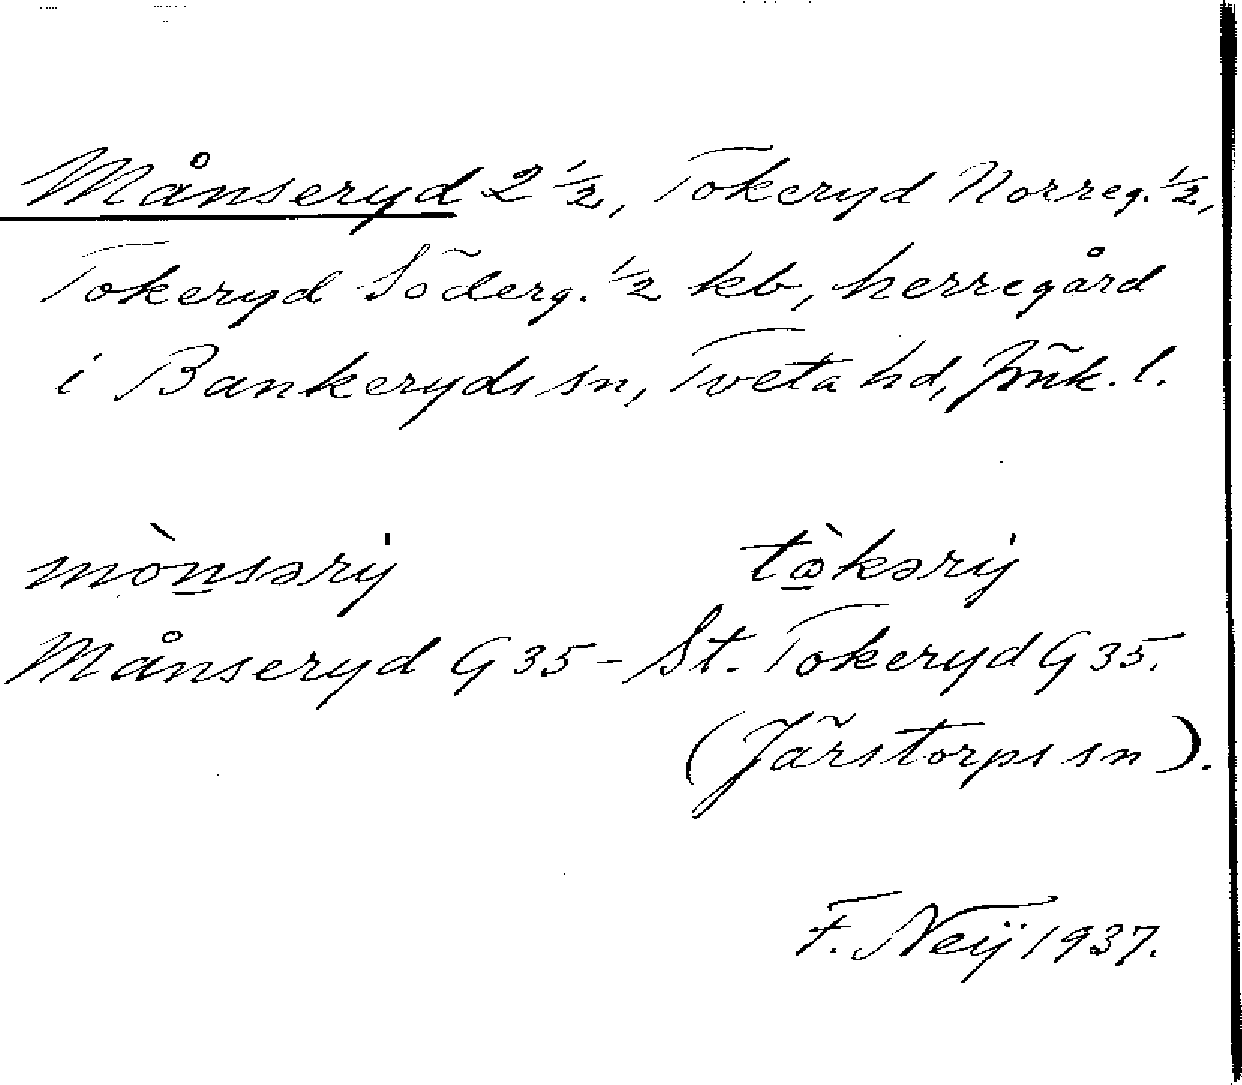 Månseryd 2 ½, Tokeryd Norreg. ½,
Tokeryd Söderg. ½ kb, herregård
i Bankeryds sn, Tveta hd, Jönk. l.
mònsəri̇j tòkəri̇j
Månseryd G 35 - St. Tokeryd G 35.
(Järstorps sn).
F. Neij 1937.